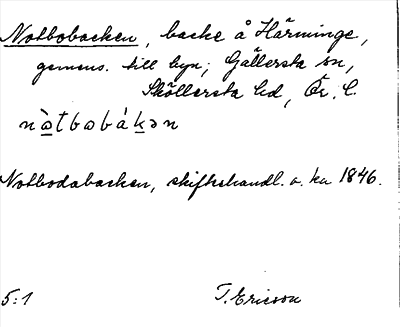 Notbobacken, backe å Härminge,
gemens. till byn; Gällersta sn,
Sköllersta hd, Ör. l.
nò̲tbobák̲ən
Notbodabacken, skifteshandl. o. ka 1846.
5:1 T. Ericson